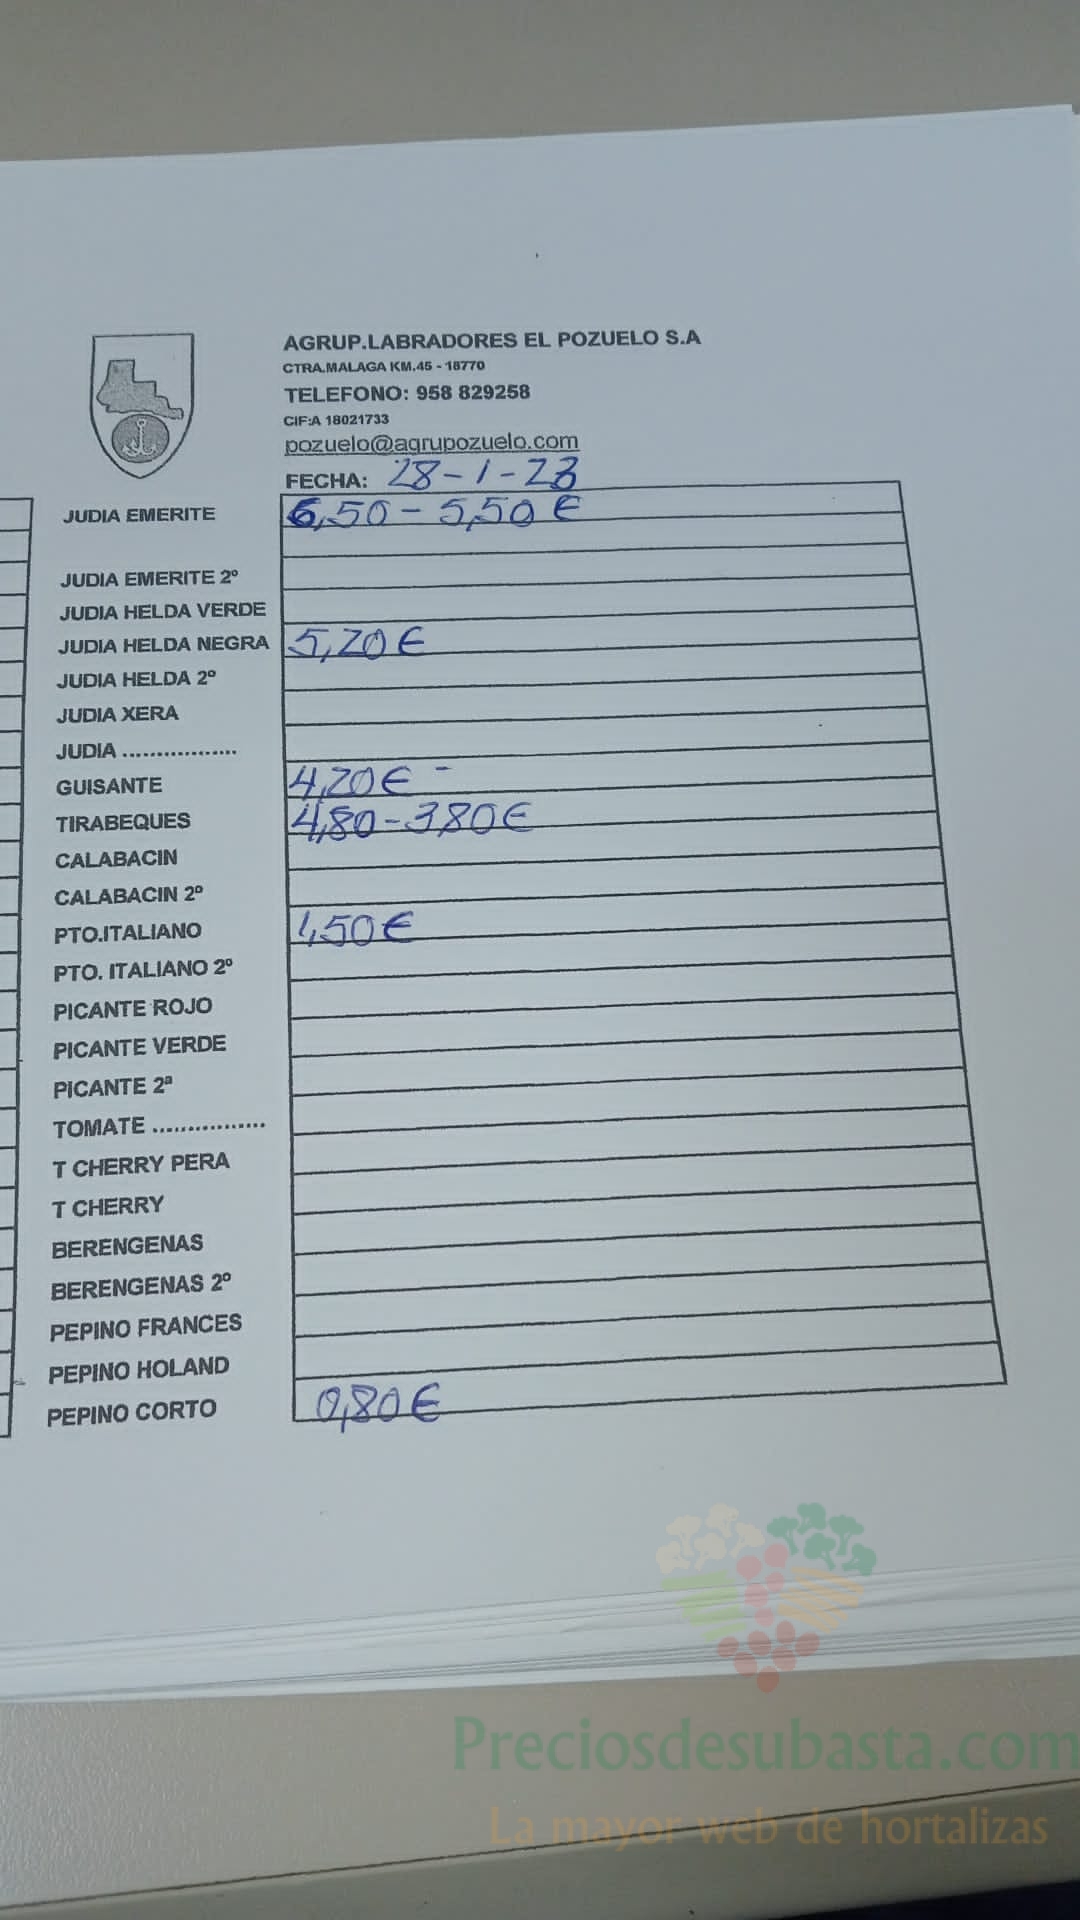 AGRUP.LABRADORES EL POZUELO S.A
CTRA.MALAGA KM.45 - 18770
TELEFONO: 958 829258
CIF:A 18021733
pozuelo@agrupozuelo.com
FECHA: 28-1-23
JUDIA EMERITE 6,50 - 5,50 €
JUDIA EMERITE 2º
JUDIA HELDA VERDE
JUDIA HELDA NEGRA 5,20€
JUDIA HELDA 2º
JUDIA XERA
JUDIA .................
GUISANTE 4,20€ -
TIRABEQUES 4,80-3,80€
CALABACIN
CALABACIN 2º
PTO.ITALIANO 1,50€
PTO. ITALIANO 2º
PICANTE ROJO
PICANTE VERDE
PICANTE 2ª
TOMATE ................
T CHERRY PERA
T CHERRY
BERENGENAS
BERENGENAS 2º
PEPINO FRANCES
PEPINO HOLAND
PEPINO CORTO 0,80€
Preciosdesubasta.com
La mayor web de hortalizas